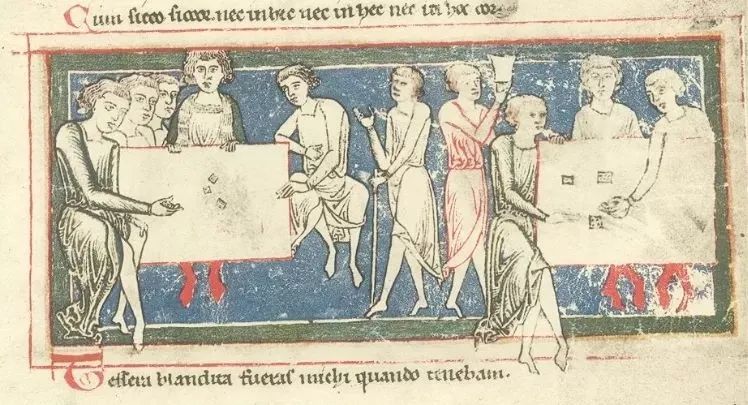 Cum sicco siccor. nec in hic nec in hec nec in hoc cor.
Tessera blandita fueras michi quando tenebam.